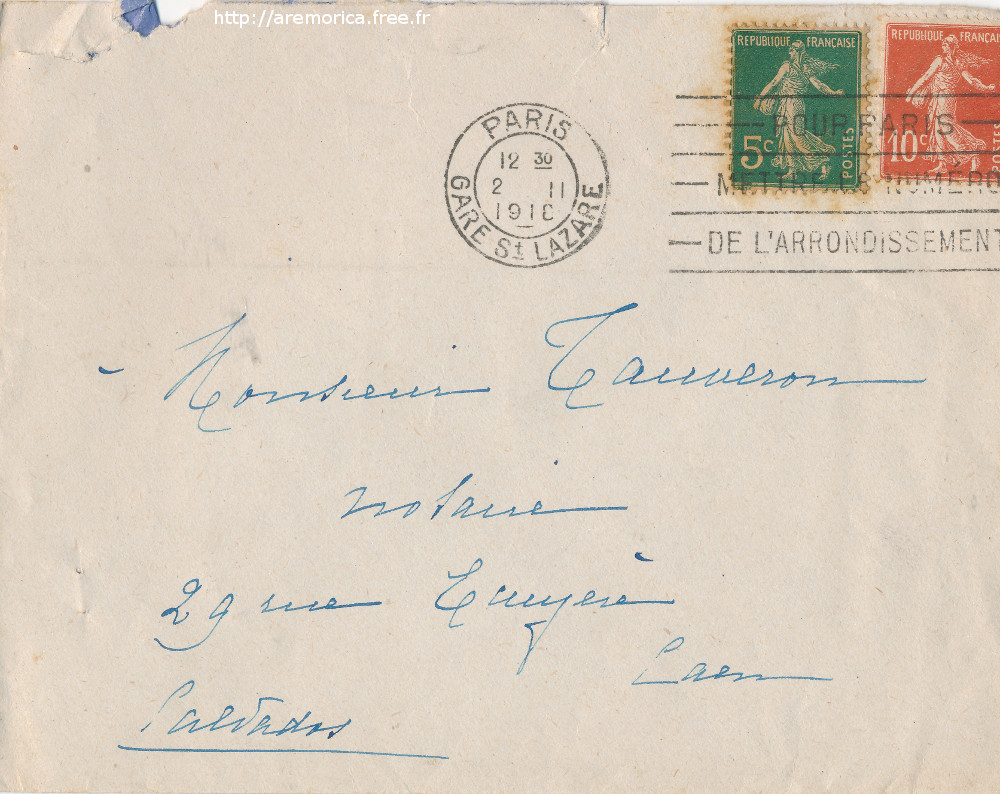 http://aremorica.free.fr
REPUBLIQUE FRANÇAISE
5c
POSTES
REPUBLIQUE FRANÇAISE
10c
POSTES
PARIS
12 30
2 II
1918
GARE St LAZARE
POUR PARIS
METTRE LE NUMÉRO
DE L'ARRONDISSEMENT
Monsieur Tauveron
notaire
29 rue
Caen
Calvados